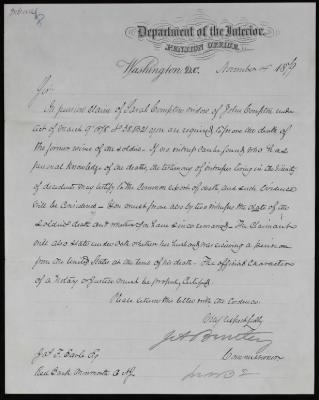 Department of the Interior,
PENSION OFFICE,
Washington D.C. November 187
In pension claim of Sarah Compton widow of John Compton under
act of March 9 1878 you are required to prove the death of
the former wife of the soldier. If no witness can be found who has
personal knowledge of the death, the testimony of witnesses living in the vicinity
of decedent may testify to the common report of death, and such evidence
will be considered. You must prove also by two witnesses the date of the
soldiers death and whether you have since remarried. The claimant
will also state under oath whether her husband was receiving a pension
from the United States at the time of his death. The official character
of a Notary or Justice must be properly certified.
Please return this letter with the evidence.
Very respectfully
J A Bentley
Commissioner
Jas. F. Earle
Red Bank Monmouth Co NJ.